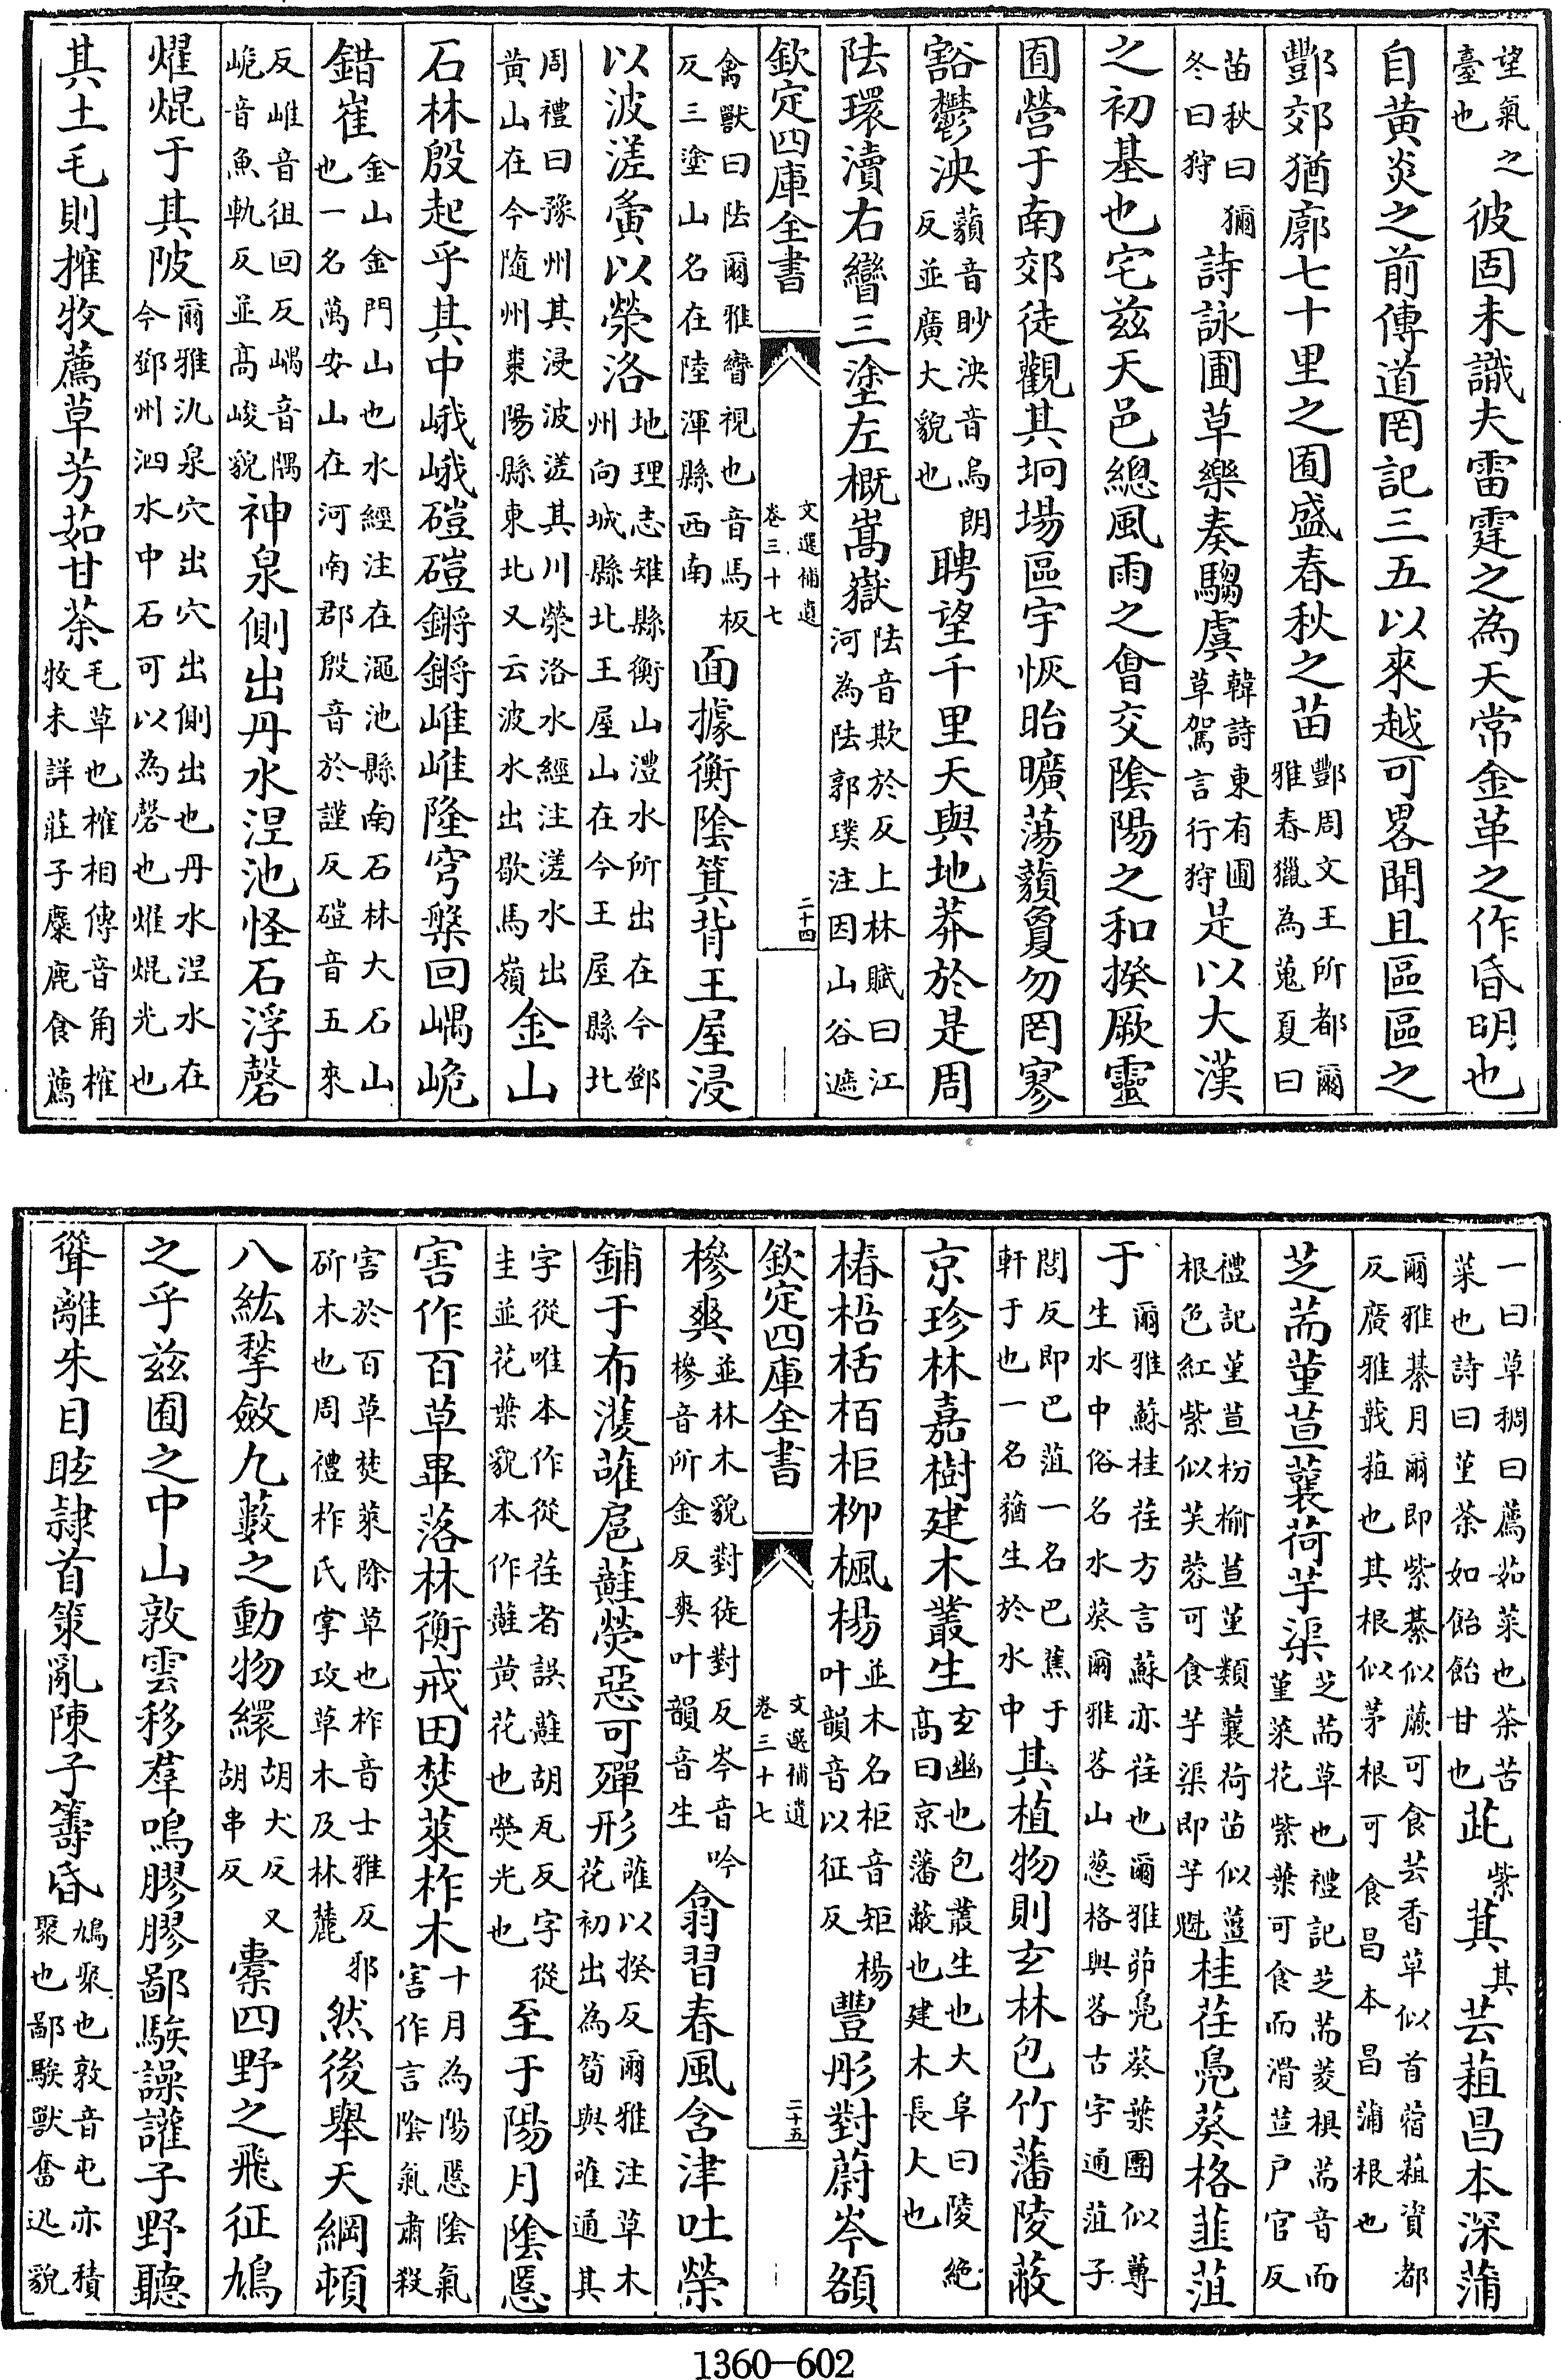 望氣之臺也彼固未識夫雷霆之為天常金革之作昏明也
自黄炎之前傳道罔記三五以來越可畧聞且區區之
酆郊猶廓七十里之囿盛春秋之苗酆周文王所都爾雅春獵為蒐夏曰
苗秋曰獮冬曰狩詩詠圃草樂奏騶虞韓詩東有圃草駕言行狩是以大漢
之初基也宅兹天邑總風雨之會交隂陽之和揆厥靈
囿營于南郊徒觀其坰場區宇恢胎曠蕩藐夐勿罔寥
豁鬱泱藐音眇泱音烏朗反並廣大貌也聘望千里天與地莽於是周
阹環瀆右矕三塗左概嵩嶽阹音欺於反上林賦曰江河為阹郭璞注因山谷遮
欽定四庫全書 文選補遺卷三十七 二十四
禽獸曰阹爾雅矕視也音馬板反三塗山名在陸渾縣西南面據衡隂箕背王屋浸
以波溠夤以滎洛地理志雉縣衡山澧水所出在今鄧州向城縣北王屋山在今王屋縣北
周禮曰豫州其浸波溠其川滎洛水經注溠水出黄山在今隨州棗陽縣東北又云波水出歇馬嶺金山
石林殷起乎其中峨峨磑磑鏘鏘嶉嶉隆穹槃回嵎峗
錯崔金山金門山也水經注在澠池縣南石林大石山也一名萬安山在河南郡殷音於謹反磑音五來
反嶉音徂回反嵎音隅峗音魚軌反並髙峻貌神泉側出丹水涅池怪石浮磬
燿焜于其陂爾雅氿泉穴出穴出側出也丹水涅水在今鄧州泗水中石可以為磬也燿焜光也
其土毛則搉牧薦草芳茹甘荼毛草也搉相傳音角搉牧未詳莊子麋鹿食薦
一曰草稠曰薦茹菜也荼苦菜也詩曰堇荼如飴飴甘也茈紫萁其芸蒩昌本深蒲
爾雅綦月爾即紫綦似蕨可食芸香草似首蓿蒩資都反廣雅蕺蒩也其根似茅根可食昌本昌蒲根也
芝荋堇荁蘘荷芋渠芝荋草也禮記芝荋菱椇荋音而堇菜花紫葉可食而滑荁户官反
禮記堇荁枌榆荁堇類蘘荷苗似藍根色紅紫似芙蓉可食芋渠即芋魁桂荏鳧葵格韮菹
于爾雅蘇桂荏方言蘇亦荏也爾雅茆鳧葵葉團似蓴生水中俗名水葵爾雅茖山葱格與茖古字通菹子
閭反即巴菹一名巴蕉于軒于也一名蕕生於水中其植物則𤣥林包竹藩陵蔽
京珍林嘉樹建木叢生𤣥幽也包叢生也大阜曰陵絶髙曰京藩蔽也建木長大也
椿梧栝栢柜柳楓楊並木名柜音矩楊叶韻音以征反豐彤對蔚岑頟
欽定四庫全書 文選補遺卷三十七 二十五
槮爽並林木貌對徒對反岑音吟槮音所金反爽叶韻音生翕習春風含津吐榮
鋪于布濩蓶扈蘳熒惡可殫形蓶以揆反爾雅注草木花初出為笋與蓶通其
字從唯本作從荏者誤蘳胡瓦反字從圭並花葉貌本作蘳黄花也熒光也至于陽月隂慝
害作百草畢落林衡戒田焚萊柞木十月為陽慝隂氣害作言隂氣肅殺
害於百草焚萊除草也柞音士雅反邪斫木也周禮柞氏掌攻草木及林麓然後舉天網頓
八紘揫斂九藪之動物繯胡犬反又胡串反橐四野之飛征鳩
之乎兹囿之中山敦雲移羣鳴膠膠鄙騃譟讙子野聽
聳離朱目眩隷首策亂陳子籌昏鳩聚也敦音屯亦積聚也鄙騃獸奮迅貌
1360—602